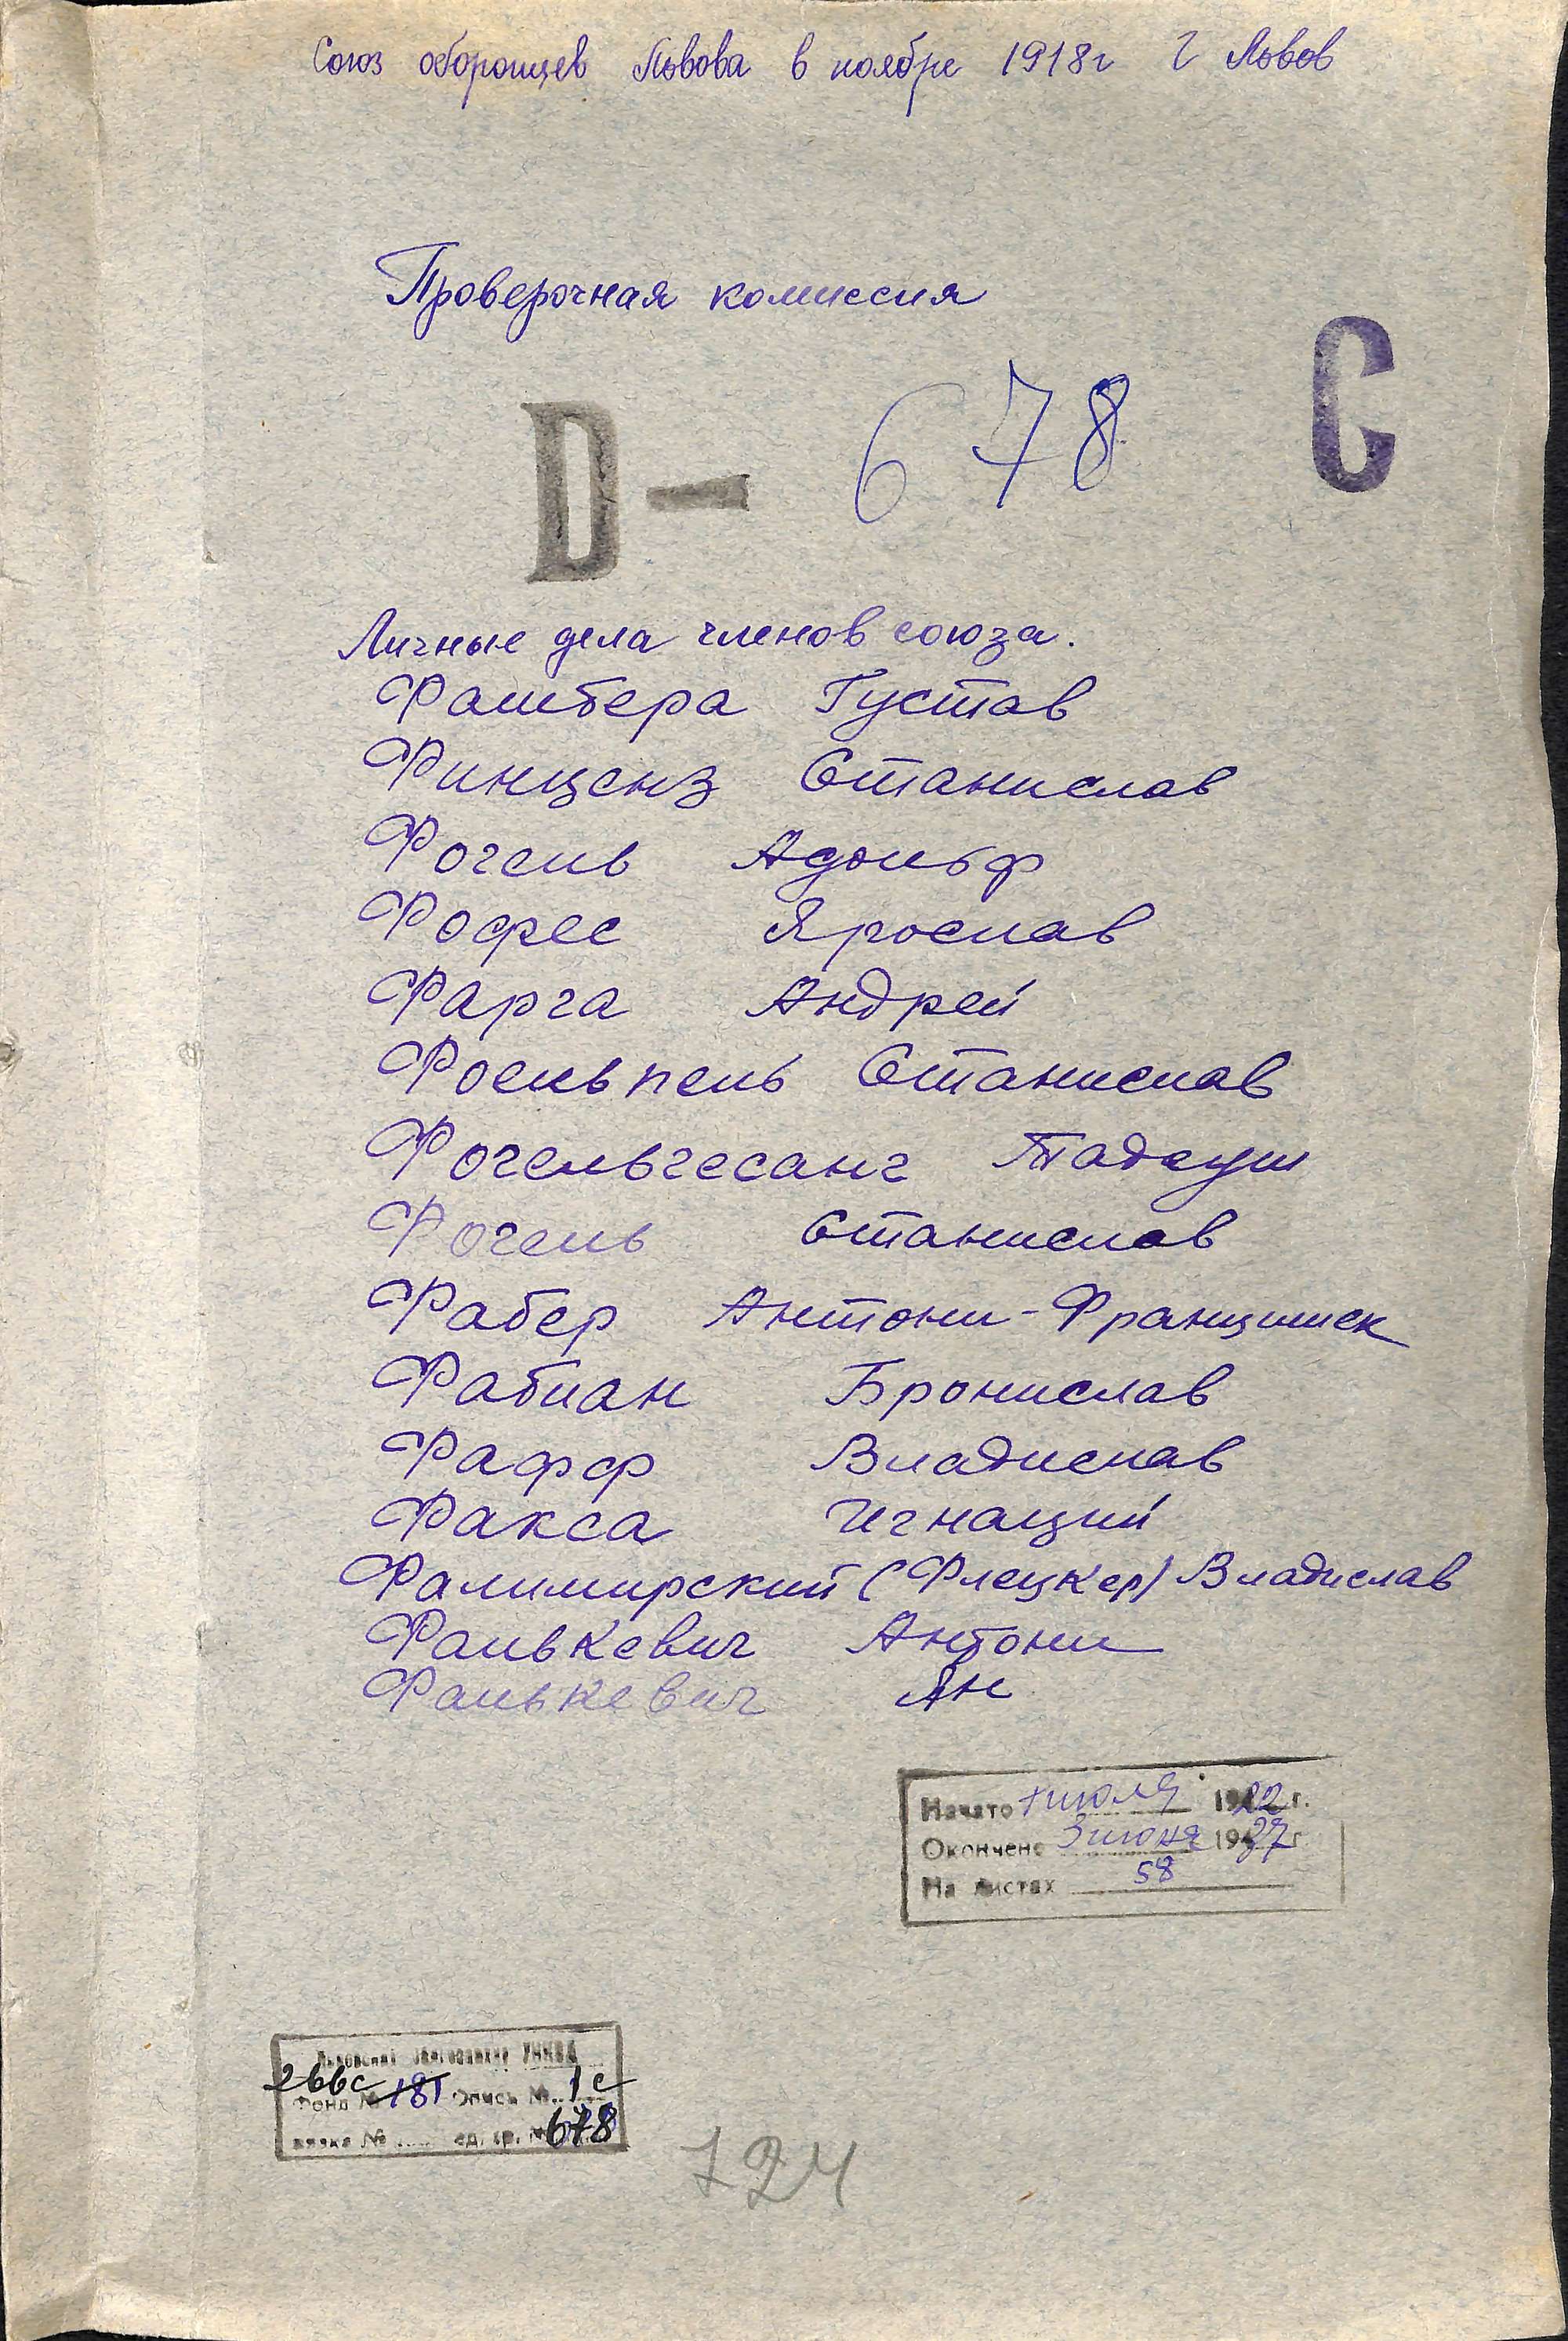 Союз оборонцев Львова в ноябре 1918г г Львов
Проверочная комиссия
C
D — 678
Личные дела членов союза.
Фашбера Густав
Финценз Станислав
Фогель Адольф
Фофес Ярослав
Фарга Андрей
Фоельпель Станислав
Фогельгесанг Тадеуш
Фогель Станислав
Фабер Антони-Францишек
Фабиан Бронислав
Фафф Владислав
Факса Игнаций
Фалимирский (Флецкер) Владислав
Фалькевич Антони
Фалькевич Ян
Начато июля 1922 г.
Окончено 3 июня 1937 г
На листах 58
266с
Фонд № 181 Опись № 1с
вязка № ед. хр. № 678
724